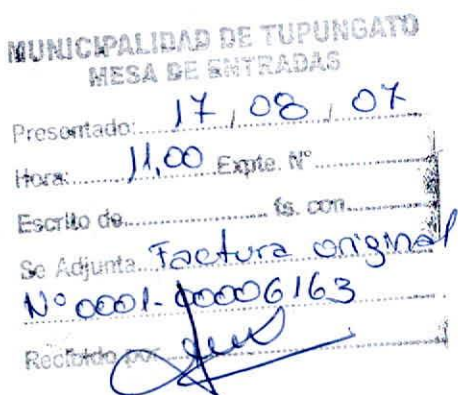 MUNICIPALIDAD DE TUPUNGATO
MESA DE ENTRADAS
Presentado: 17, 08, 07
Hora: 11,00 Expte. Nº
Escrito de fs. con
Se Adjunta Factura original
Nº 0001-00006163
Recibido por